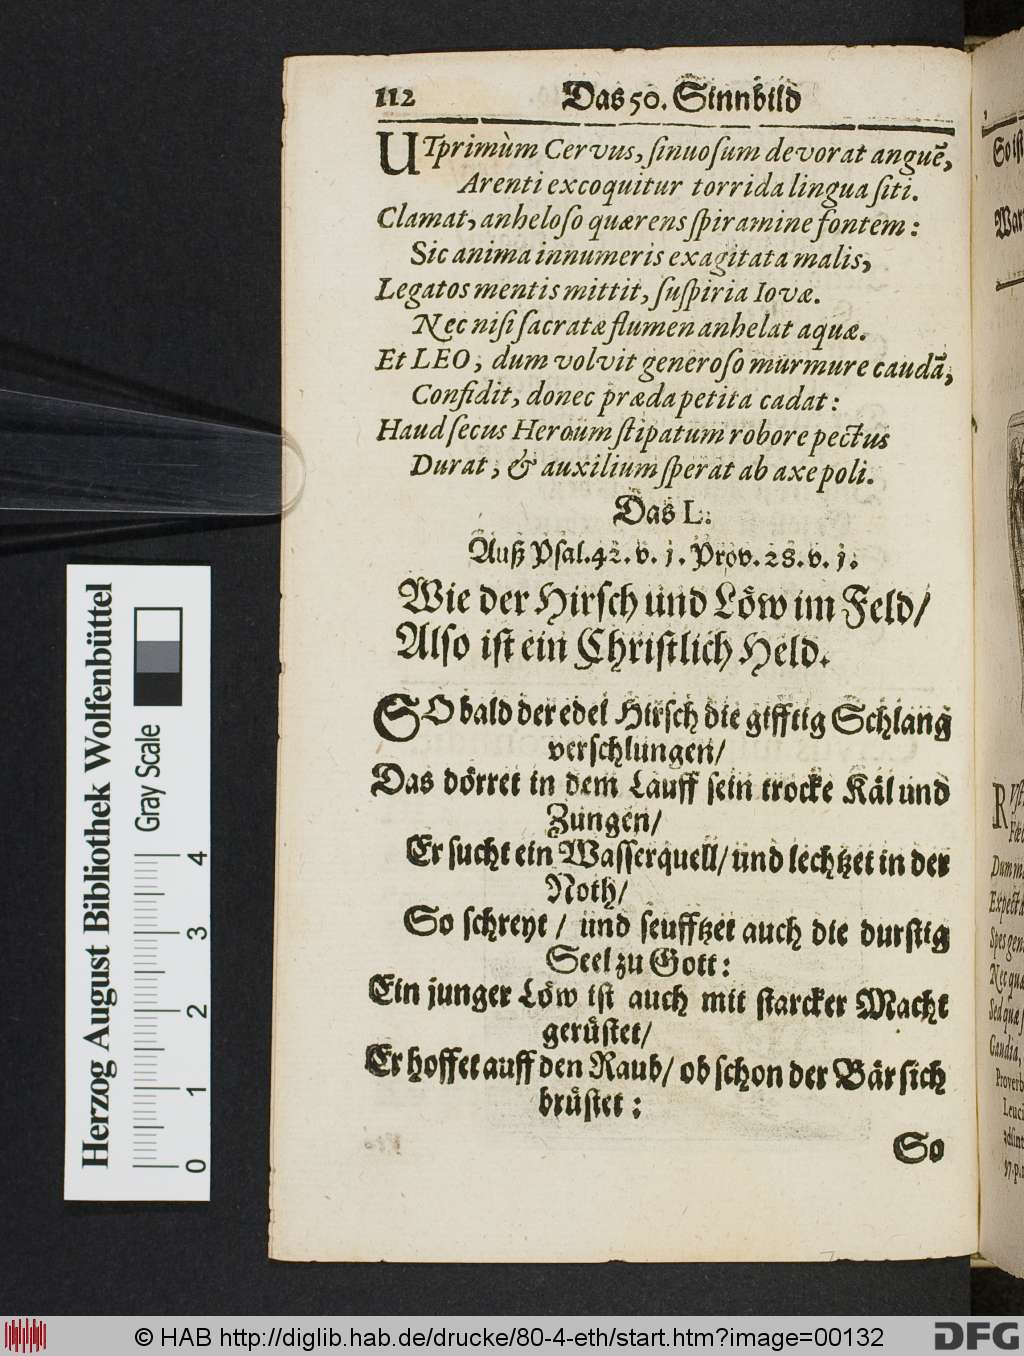 112 Das 50. Sinnbild
UTprimùm Cervus, ſinuoſum devorat anguē,
Arenti excoquitur torrida lingua ſiti.
Clamat, anheloſo quærens ſpiramine fontem:
Sic anima innumeris exagitata malis,
Legatos mentis mittit, ſuſpiria Iovæ.
Nec niſi ſacratæ flumen anhelat aquæ.
Et LEO, dum volvit generoſo murmure caudā,
Confidit, donec præda petita cadat:
Haud ſecus Heroüm ſtipatum robore pectus
Durat, & auxilium ſperat ab axe poli.
Das L.
Auß Pſal. 42. v. 1. Prov. 28. v. 1.
Wie der Hirſch und Löw im Feld/
Alſo iſt ein Chriſtlich Held.
SO bald der edel Hirſch die gifftig Schlang
verſchlungen/
Das dörret in dem Lauff ſein trocke Käl und
Zungen/
Er ſucht ein Waſſerquell/ und lechtzet in der
Noth/
So ſchreyt / und ſeufftzet auch die durſtig
Seel zu Gott:
Ein junger Löw iſt auch mit ſtarcker Macht
gerüſtet/
Er hoffet auff den Raub/ ob ſchon der Bär ſich
brüſtet:
So
So iſt
War
Herzog August Bibliothek Wolfenbüttel
Gray Scale
0 1 2 3 4
© HAB http://diglib.hab.de/drucke/80-4-eth/start.htm?image=00132
DFG